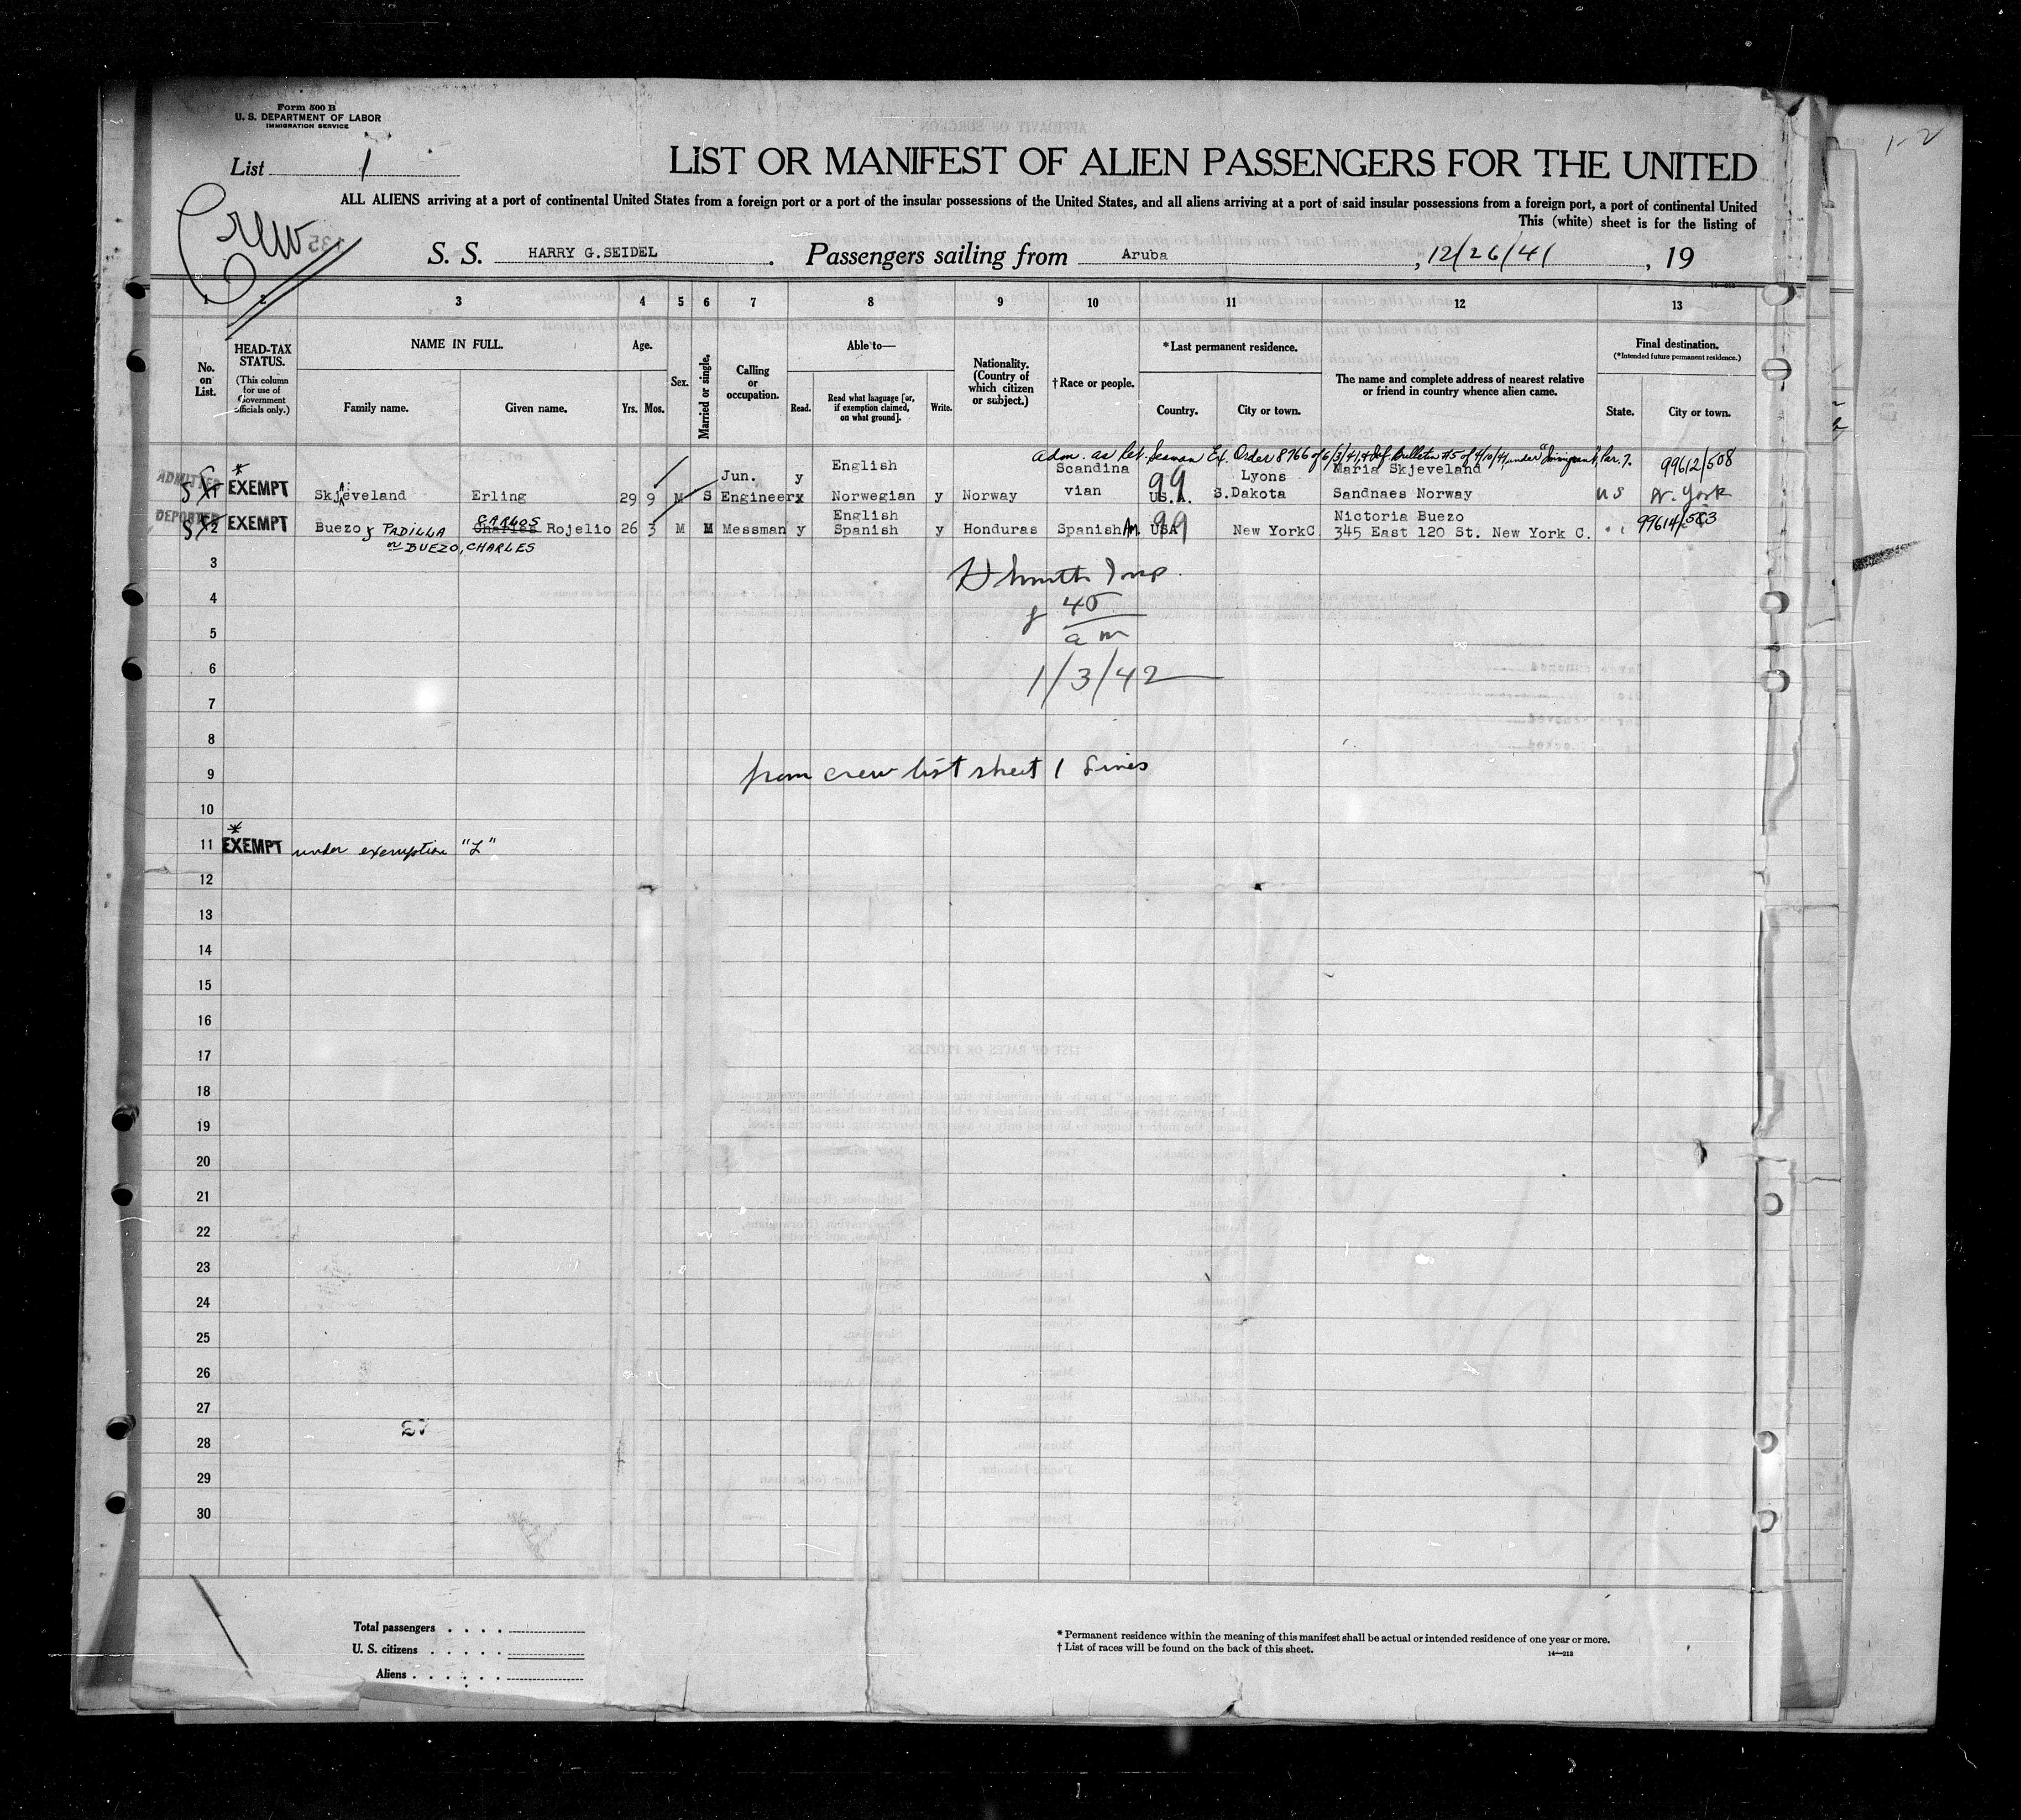 Form 500 B
U. S. DEPARTMENT OF LABOR
IMMIGRATION SERVICE
1-2
List 1
LIST OR MANIFEST OF ALIEN PASSENGERS FOR THE UNITED
Crew
ALL ALIENS arriving at a port of continental United States from a foreign port or a port of the insular possessions of the United States, and all aliens arriving at a port of said insular possessions from a foreign port, a port of continental United
This (white) sheet is for the listing of
S. S. HARRY G. SEIDEL. Passengers sailing from Aruba, 12/26/41, 19
1 2 3 4 5 6 7 8 9 10 11 12 13
No. on List.
HEAD-TAX STATUS.
(This column for use of Government officials only.)
NAME IN FULL.
Family name. Given name.
Age.
Yrs. Mos.
Sex.
Married or single.
Calling or occupation.
Able to—
Read. Read what language [or, if exemption claimed, on what ground]. Write.
Nationality. (Country of which citizen or subject.)
†Race or people.
*Last permanent residence.
Country. City or town.
The name and complete address of nearest relative or friend in country whence alien came.
Final destination.
(*Intended future permanent residence.)
State. City or town.
adm. as Ref. Seaman Ex. Order 8766 of 6/3/41 & Def. Bulletin #5 of 4/10/41 under "Immigrant", Par. 7. 99612/508
ADMITTED * Jun. y English Scandina 99 Lyons Maria Skjeveland
S X1 EXEMPT Skjeveland Erling 29 9 M S Engineer x Norwegian y Norway vian U.S.A. S.Dakota Sandnaes Norway U S N. York
DEPORTED CARLOS English 99 Nictoria Buezo 99614/503
S X2 EXEMPT Buezo y PADILLA Charles Rojelio 26 3 M M Messman y Spanish y Honduras Spanish Am. USA New YorkC 345 East 120 St. New York C. " "
or BUEZO, CHARLES
3
4
5
6
7
8
9
10
Insp.
45
am
1/3/42
from crew list sheet 1 Lines
*
11 EXEMPT under exemption "L"
12
13
14
15
16
17
18
19
20
21
22
23
24
25
26
27
28
29
30
27
Total passengers
U. S. citizens
Aliens
* Permanent residence within the meaning of this manifest shall be actual or intended residence of one year or more.
† List of races will be found on the back of this sheet.
14—213